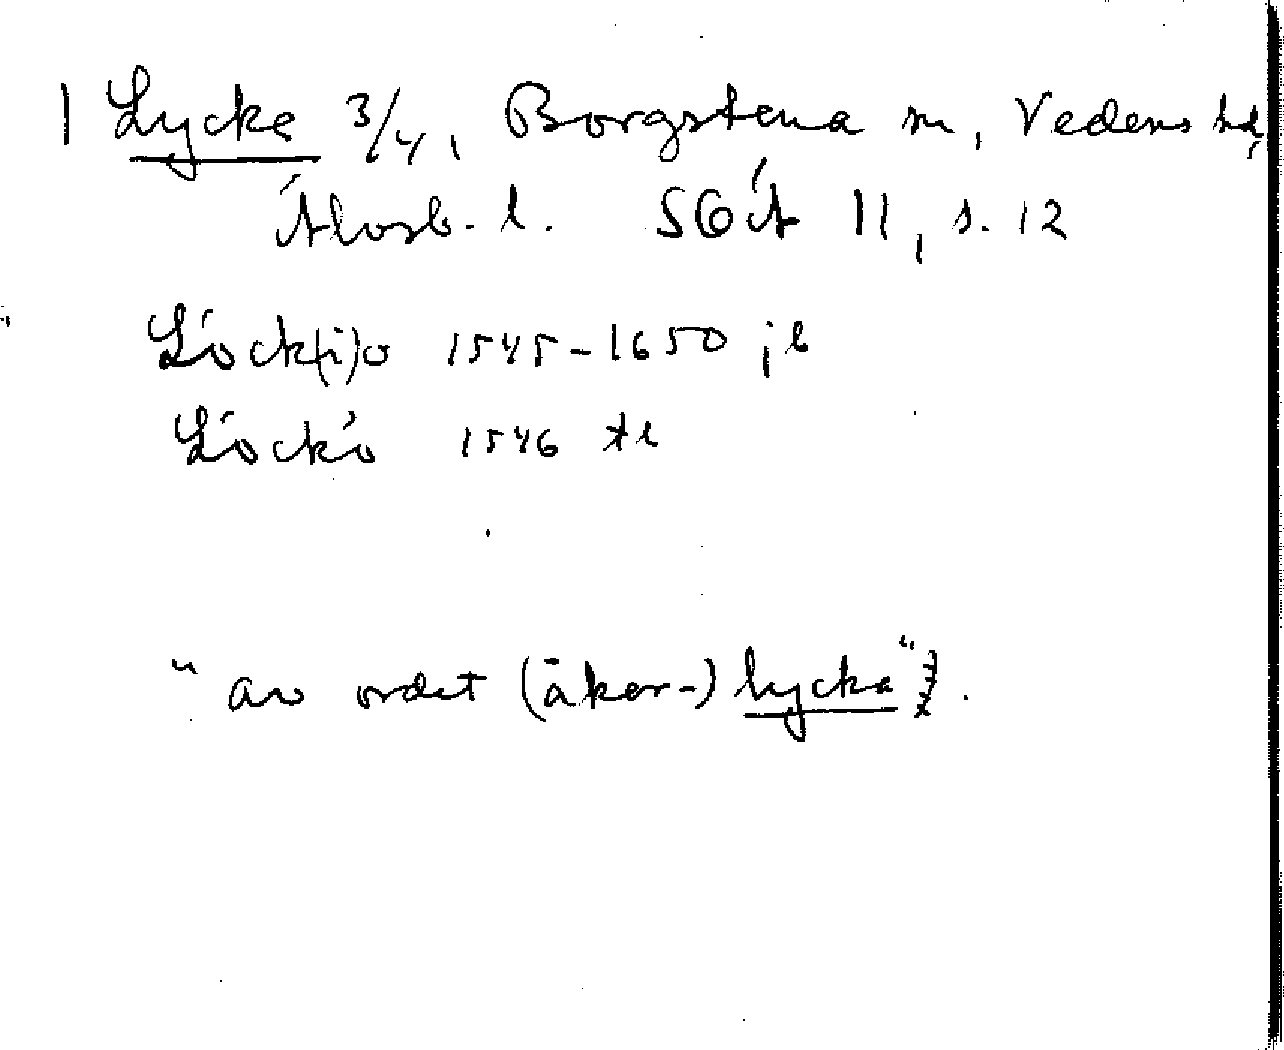 1 Lycke 3/4, Borgstena sn, Vedens hd,
Älvsb. l. SGÄ 11, s. 12
Löck(i)o 1545-1650 jb
Löckö 1546 tl
"av ordet (åker-) lycka".